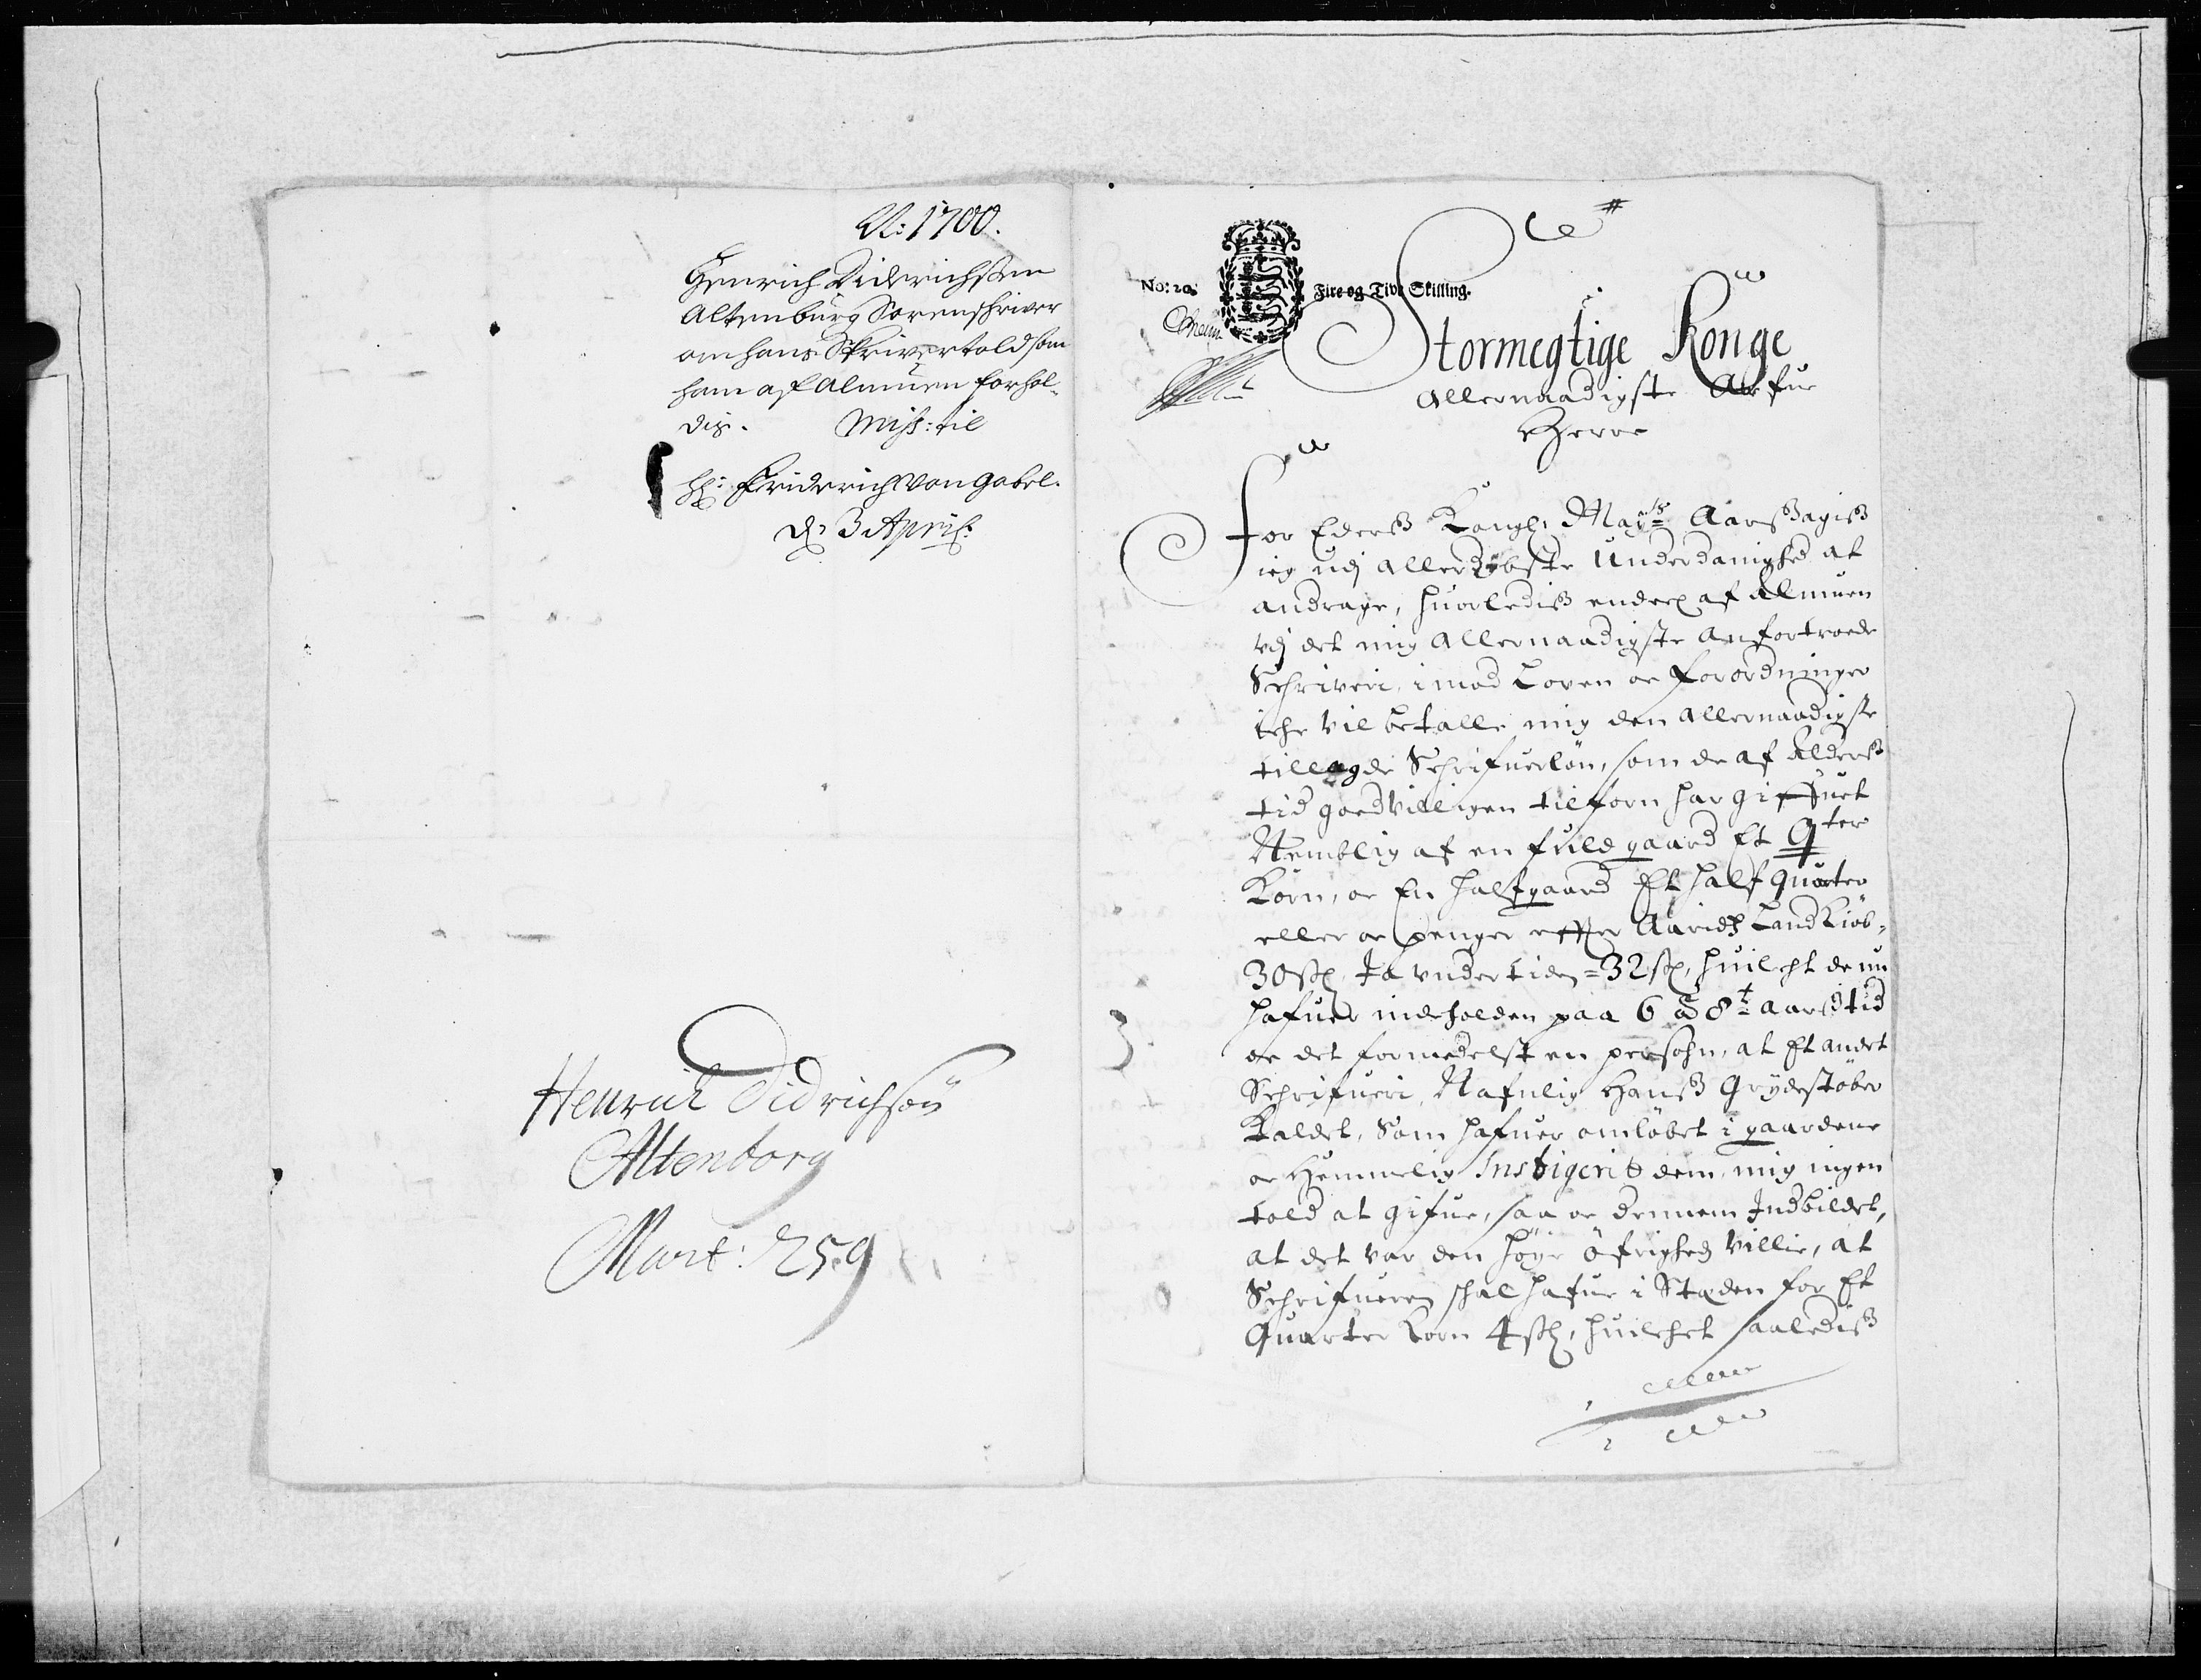 A: 1700.
Henrich Diderichsen
Altenburg Sorenschriver
om hans Skrivertold som
ham af Almuen forhol-
dis. Miss: til
H: Friderich von Gabel.
d: 3 April:
Henrich Didrichsen
Altenborg
Mart: 259
No: 20. Fire og Tive Skilling.
Stormegtige Konge
Allernaadigste Arfue
Herre
For Ederß Kongl: Mayts Aarßagiß
ieg udj allerdybste Underdanighed at
andrage, huorlediß endeel af Almuen
vdj det mig allernaadigste anfortroede
Schriveri, imod Loven oc Forordninger
iche vil betalle mig den allernaadigste
tillagde Schrifuerløn, som de af Alderß
tid goedvilligen tilforn har gifuet
Nemblig af en fuld gaard Et Qter
Korn, oc En halfgaard Et half Quarter
eller oc penger efter Aarids Landkiøb,
30 sk, Ja undertiden = 32 sk, huilcht de nu
hafuer inderholden paa 6 à 8t aarß tid
oc det formedelst en persohn, at Et andet
Schrifueri, Nafnlig Hanß Grydestøber
Kaldet, Som hafuer omløbet i gaardene
oc Hemmelig Instigerit dem, mig ingen
told at gifue, saa oc dennem Indbildet,
at det var den høye Øfrigheds Villie, at
Schrifueren schal hafue i Stæden for Et
Quarter Korn 4 sk, huilchet saalediß